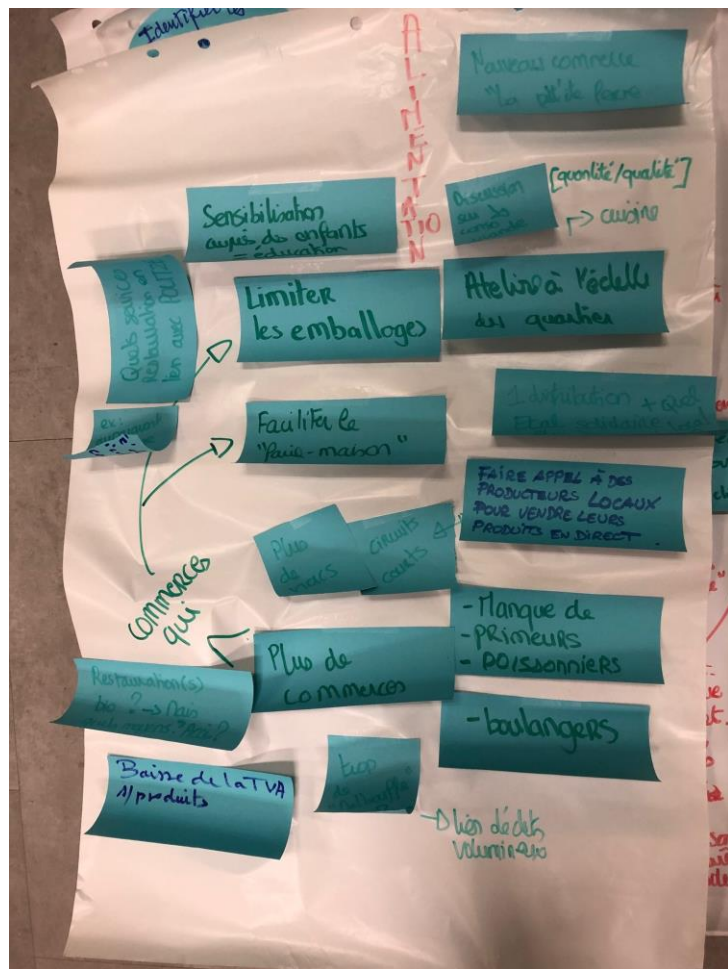 Identifier les
ALIMENTATION
Nouveau commerce
"La de ferme
Sensibilisation
auprès des enfants
= éducation
Discussion
sur
[quantité/qualité]
→ cuisine
Quels services
Restauration en
lien avec
ex:
Limiter
les emballages
Atelier à l'échelle
des quartier
Faciliter le
"faire-maison"
1 distribution +
solidaire
FAIRE APPEL À DES
PRODUCTEURS LOCAUX
POUR VENDRE LEURS
PRODUITS EN DIRECT.
Plus
de
circuits
courts
COMMERCES
qui
Plus de
commerces
- Manque de
- PRIMEURS
- POISSONNIERS
- boulangers
Restauration(s)
bio ? → Mais
Baisse de la TVA
s/produits
→ lien déchets